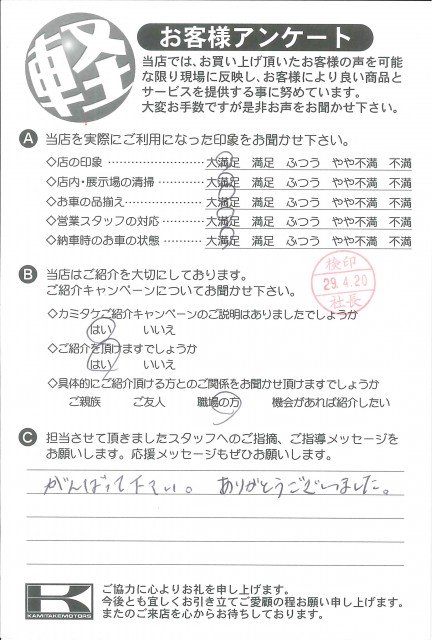 軽
お客様アンケート
当店では、お買い上げ頂いたお客様の声を可能
な限り現場に反映し、お客様により良い商品と
サービスを提供する事に努めています。
大変お手数ですが是非お声をお聞かせ下さい。
A 当店を実際にご利用になった印象をお聞かせ下さい。
◇店の印象 …………………… 大満足 満足 ふつう やや不満 不満
◇店内・展示場の清掃 ………… 大満足 満足 ふつう やや不満 不満
◇お車の品揃え ……………… 大満足 満足 ふつう やや不満 不満
◇営業スタッフの対応 ……… 大満足 満足 ふつう やや不満 不満
◇納車時のお車の状態 ……… 大満足 満足 ふつう やや不満 不満
B 当店はご紹介を大切にしております。
ご紹介キャンペーンについてお聞かせ下さい。
検印
29.4.20
社長
◇カミタケご紹介キャンペーンのご説明はありましたでしょうか
はい いいえ
◇ご紹介を頂けますでしょうか
はい いいえ
◇具体的にご紹介頂ける方とのご関係をお聞かせ頂けますでしょうか
ご親族 ご友人 職場の方 機会があれば紹介したい
C 担当させて頂きましたスタッフへのご指摘、ご指導メッセージを
お願いします。応援メッセージもぜひお願いします。
がんばって下さい。 ありがとうございました。
K
KAMITAKEMOTORS
ご協力に心よりお礼を申し上げます。
今後とも宜しくお引き立てご愛顧の程お願い申し上げます。
またのご来店を心からお待ちしております。